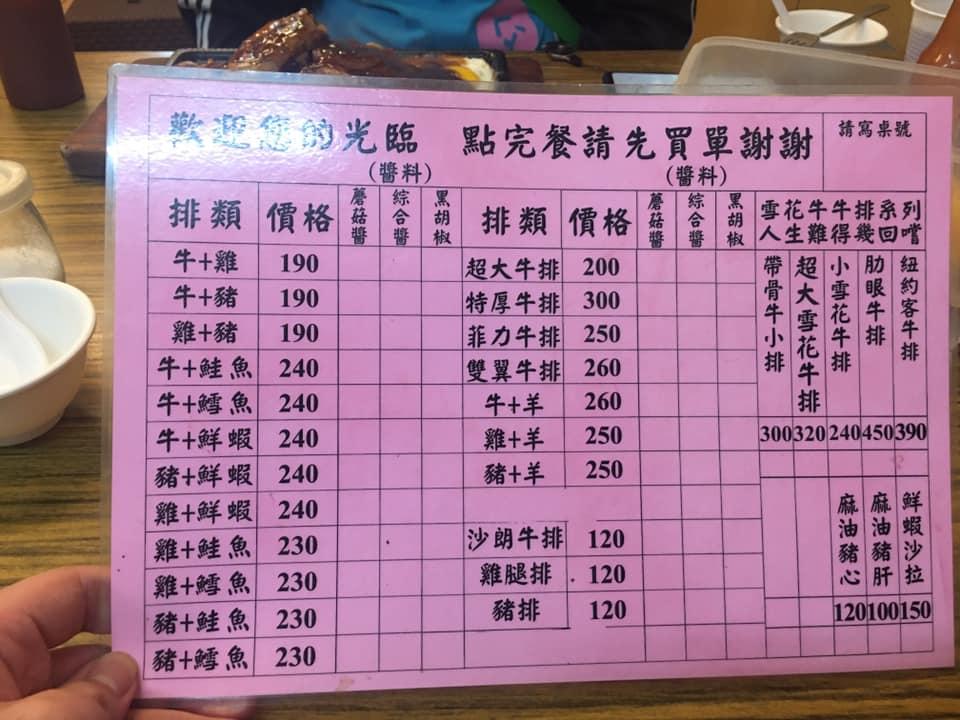 歡迎您的光臨 點完餐請先買單謝謝 請寫桌號
(醬料) (醬料)
排類 價格 蘑菇醬 綜合醬 黑胡椒 排類 價格 蘑菇醬 綜合醬 黑胡椒
牛+雞 190 超大牛排 200
牛+豬 190 特厚牛排 300
雞+豬 190 菲力牛排 250
牛+鮭魚 240 雙翼牛排 260
牛+鱈魚 240 牛+羊 260
牛+鮮蝦 240 雞+羊 250
豬+鮮蝦 240 豬+羊 250
雞+鮮蝦 240
雞+鮭魚 230 沙朗牛排 120
雞+鱈魚 230 雞腿排 120
豬+鮭魚 230 豬排 120
豬+鱈魚 230
雪花牛牛排系列
人生難得幾回嚐
帶骨牛小排 超大雪花牛排 小雪花牛排 肋眼牛排 紐約客牛排
300 320 240 450 390
麻油豬心 麻油豬肝 鮮蝦沙拉
120 100 150